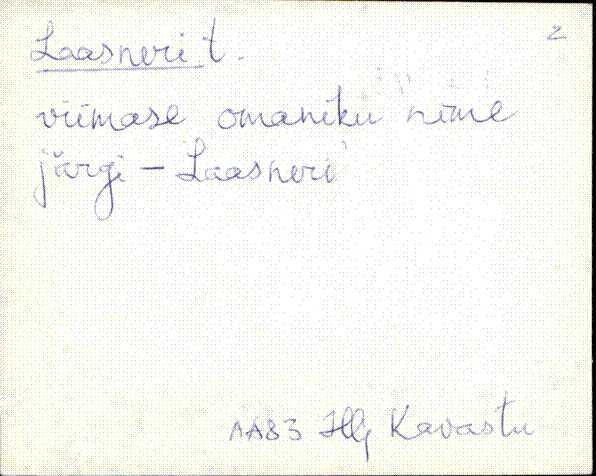 2
Laasneri t.
viimase omaniku nime
järgi - Laasneri
AA83 Hlj Kavastu